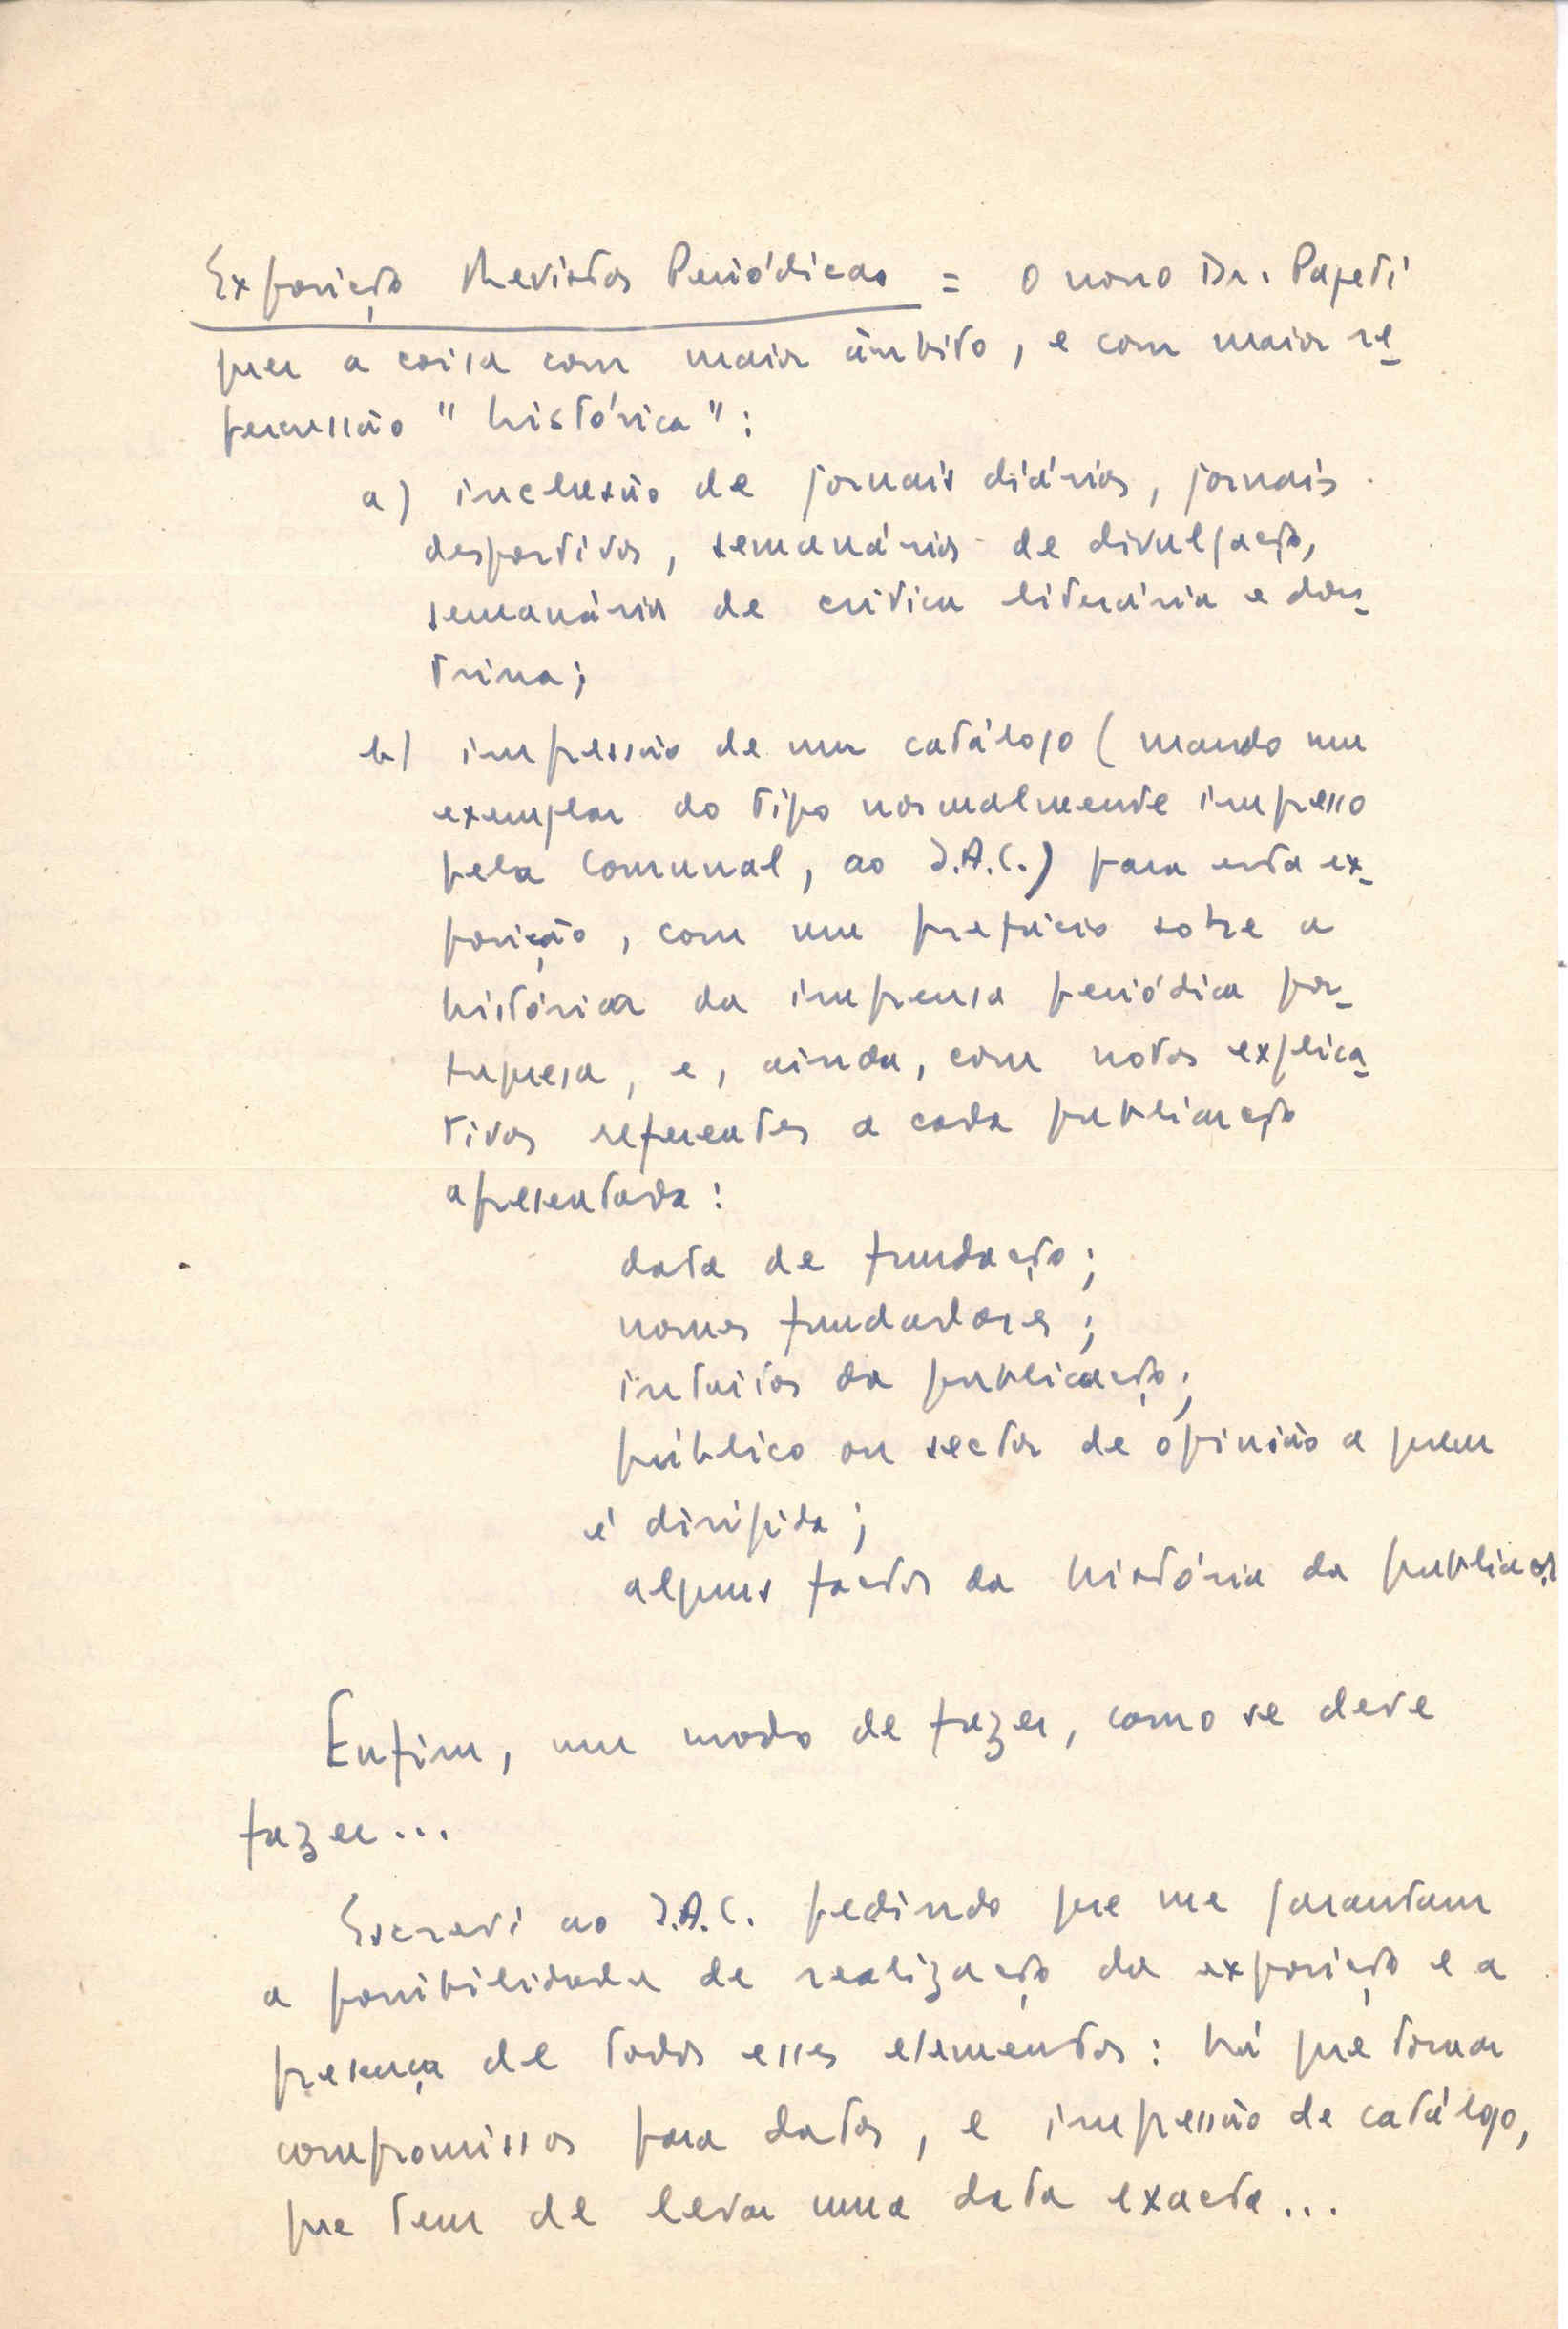 Exposição Revistas Periódicas = O nosso Dr. Papeti
quer a coisa com maior âmbito, e com maior re-
percussão "histórica":
a) inclusão de jornais diários, jornais
desportivos, semanários de divulgação,
semanários de critica literária e dou-
trina;
b) impressão de um catálogo (mando um
exemplar do tipo normalmente impresso
pela Comunal, ao I.A.C.) para esta ex-
posição, com um prefácio sobre a
história da imprensa periódica por-
tuguesa, e, ainda, com notas explica-
tivas referentes a cada publicação
apresentada:
data de fundação;
nomes fundadores;
intuitos da publicação;
público ou sector de opinião a quem
é dirigida;
alguns factos da história da publicação
Enfim, um modo de fazer, como se deve
fazer...
Escrevi ao I.A.C. pedindo que me garantam
a possibilidade de realização da exposição e a
presença de todos esses elementos: há que tomar
compromissos para datas, e impressão de catálogo,
que tem de levar uma data exacta...